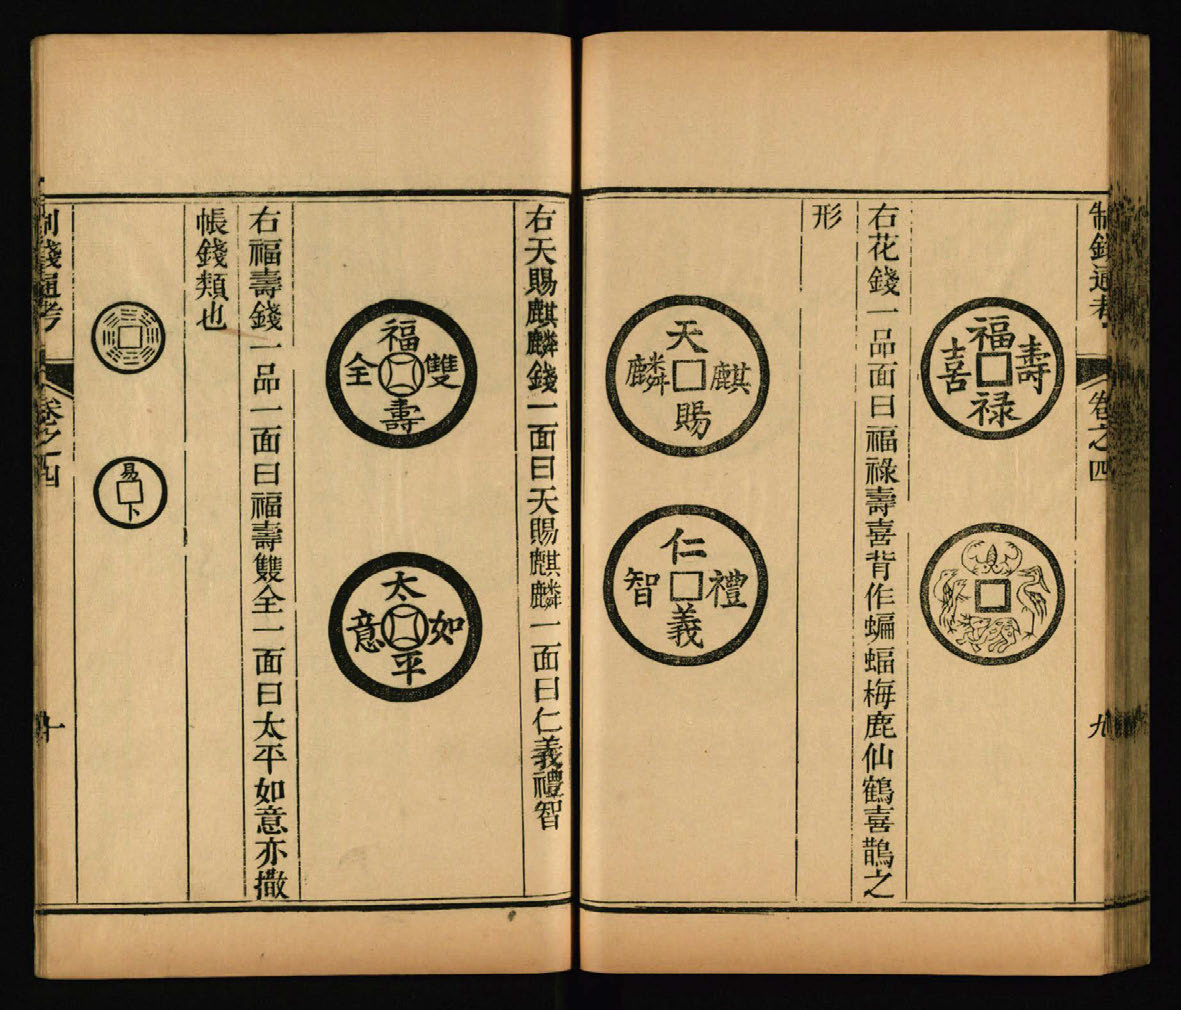 制錢通考
卷之四
九
福祿壽喜
右花錢一品面曰福祿壽喜背作蝙蝠梅鹿仙鶴喜鵲之
形
天賜麒麟
仁義禮智
右天賜麒麟錢一面曰天賜麒麟一面曰仁義禮智
福壽雙全
太平如意
右福壽錢一品一面曰福壽雙全一面曰太平如意亦撒
帳錢類也
易卜
制錢通考
卷之四
十